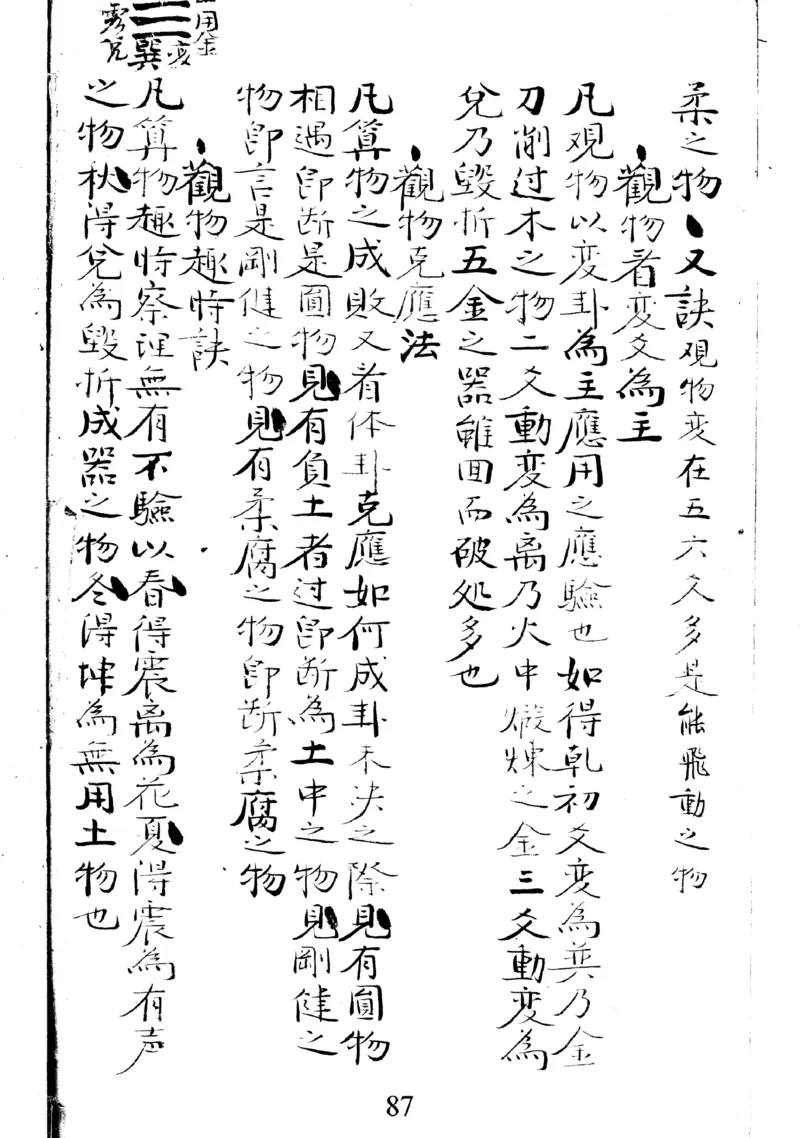 柔之物、又訣观物变在五六爻多是能飛動之物
、觀物看变爻為主
凡观物以变卦為主應用之應驗也如得乹初爻变為巽乃金
刀削过木之物二爻動变為离乃火中煅煉之金三爻動变為
兌乃毀折五金之器雖囬而破处多也
、觀物克應法
凡算物之成敗又看体卦克應如何成卦未决之際見有圎物
相遇即断是圎物見有負土者过即断為土中之物見剛健之
物即言是剛健之物見有柔腐之物即断柔腐之物
、觀物趣時訣
凡算物趣時察理無有不驗以春得震离為花夏得震為有声
之物秋得兌為毀折成器之物冬得坤為無用土物也
用金
变
巽
兌
87